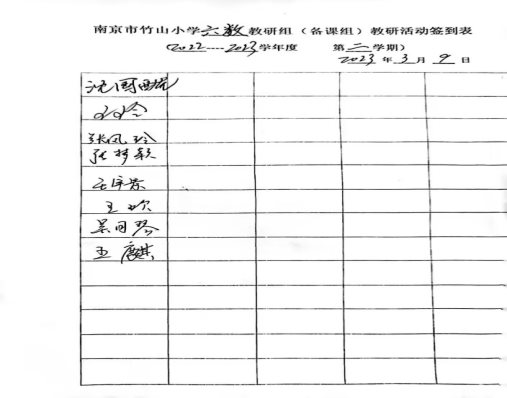 南京市竹山小学六数教研组（备课组）教研活动签到表
（2022----2023学年度 第二学期）
2023年3月9日
张凤玲
张梦颖
王欢
王麒